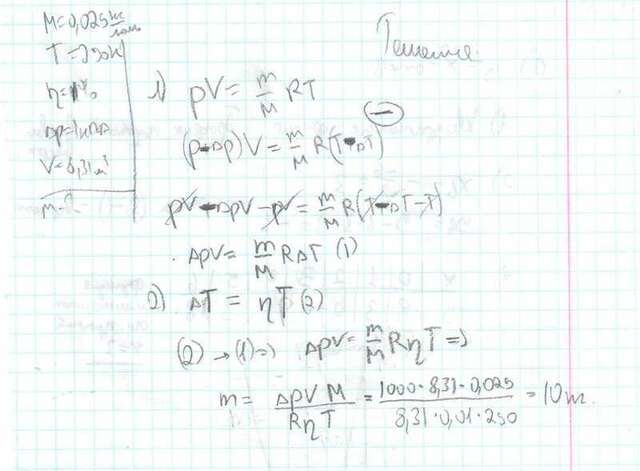 M=0,025 кг/моль
T=250K
η=1%
Δp=1кПа
V=8,31м³
m-?
Решение.
1) pV = m/M RT
(p-Δp)V = m/M R(T-ΔT)
pV-ΔpV-pV = m/M R(T-ΔT-T)
ΔpV = m/M RΔT (1)
2) ΔT = ηT (2)
(2) → (1) => ΔpV = m/M RηT =>
m = ΔpVM/RηT = 1000·8,31·0,025/8,31·0,01·250 = 10